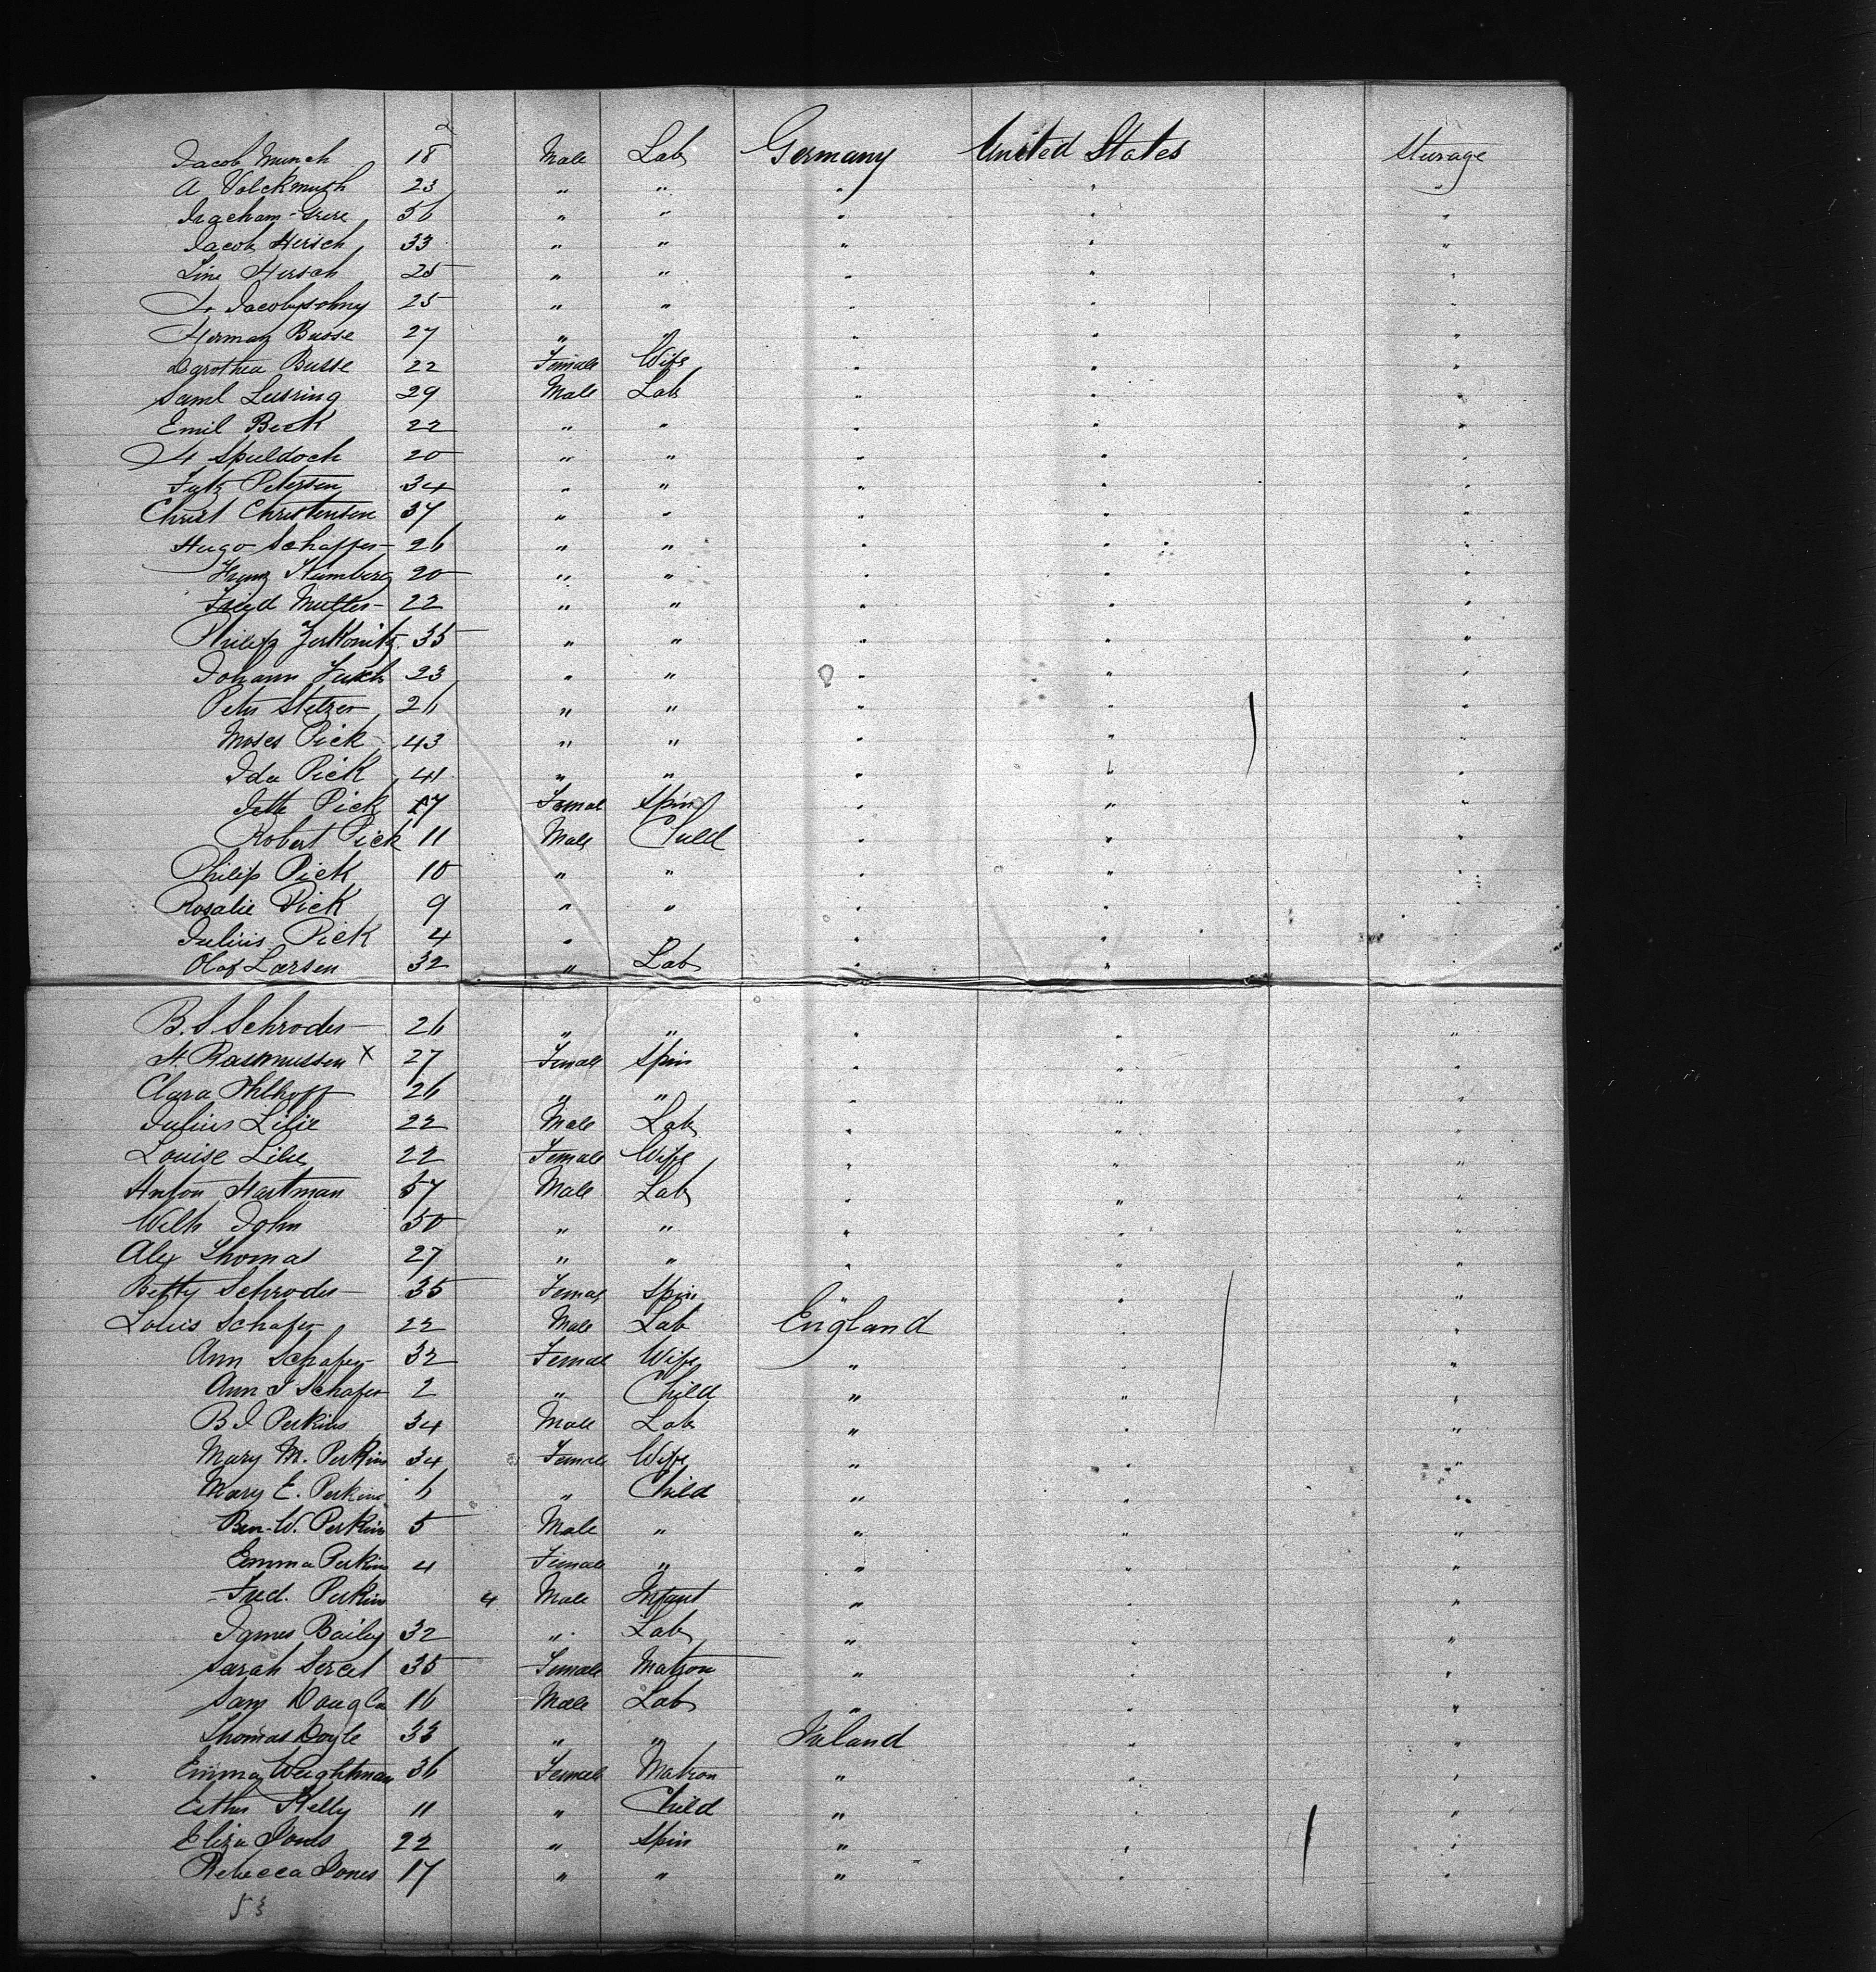 Jacob Munch 18 Male Lab Germany United States Steerage
A Volckmuth 23 " " " " "
36 " " " " "
Jacob Hirsch 33 " " " " "
Line Hirsch 25 " " " " "
Jacobysohny 25 " " " " "
Herman Busse 27 " " " " "
Dorothea Busse 22 Female Wife " " "
Saml Lusring 29 Male Lab " " "
Emil Beck 22 " " " " "
H Spuldoch 20 " " " " "
Fritz Petersen 34 " " " " "
Christ Christensen 37 " " " " "
Hugo Schaffer 26 " " " " "
Franz Stemberg 20 " " " " "
Fried Muller 22 " " " " "
Philip Zerkonitz 35 " " " " "
Johann Fuchs 23 " " " " "
Peter Stelzer 26 " " " " "
Moses Pick 43 " " " " "
Ida Pick 41 " " " " "
Jette Pick 17 Femal Spin " " "
Robert Pick 11 Male Child " " "
Philip Pick 10 " " " " "
Rosalie Pick 9 " " " " "
Julius Pick 4 " " " " "
Olof Larsen 32 " Lab " " "
B. S. Schroder 26 " " " " "
H. Rasmussen x 27 Female Spin " " "
Clara Ohlhoff 26 " " " " "
Julius Lilie 22 Male Lab " " "
Louise Lilie 22 Female Wife " " "
Anton Hartman 57 Male Lab " " "
Wilh John 50 " " " " "
Alex Thomas 27 " " " " "
Betty Schroder 35 Female Spin " " "
Louis Schafer 22 Male Lab England " "
Ann Schafer 32 Female Wife " " "
Ann J Schafer 2 " Child " " "
B J Perkins 34 Male Lab " " "
Mary M. Perkins 34 Female Wife " " "
Mary E. Perkins 6 " Child " " "
Ben. W. Perkins 5 Male " " " "
Emma Perkins 4 Female " " " "
Fred. Perkins 4 Male Infant " " "
James Bailey 32 " Lab " " "
Sarah 35 Female Matron " " "
Sam Douglas 16 Male Lab " " "
Thomas Doyle 33 " " Ireland " "
Emma Weightman 36 Female Matron " " "
Esther Kelly 11 " Child " " "
Eliza Jones 22 " Spin " " "
Rebecca Jones 17 " " " " "
53